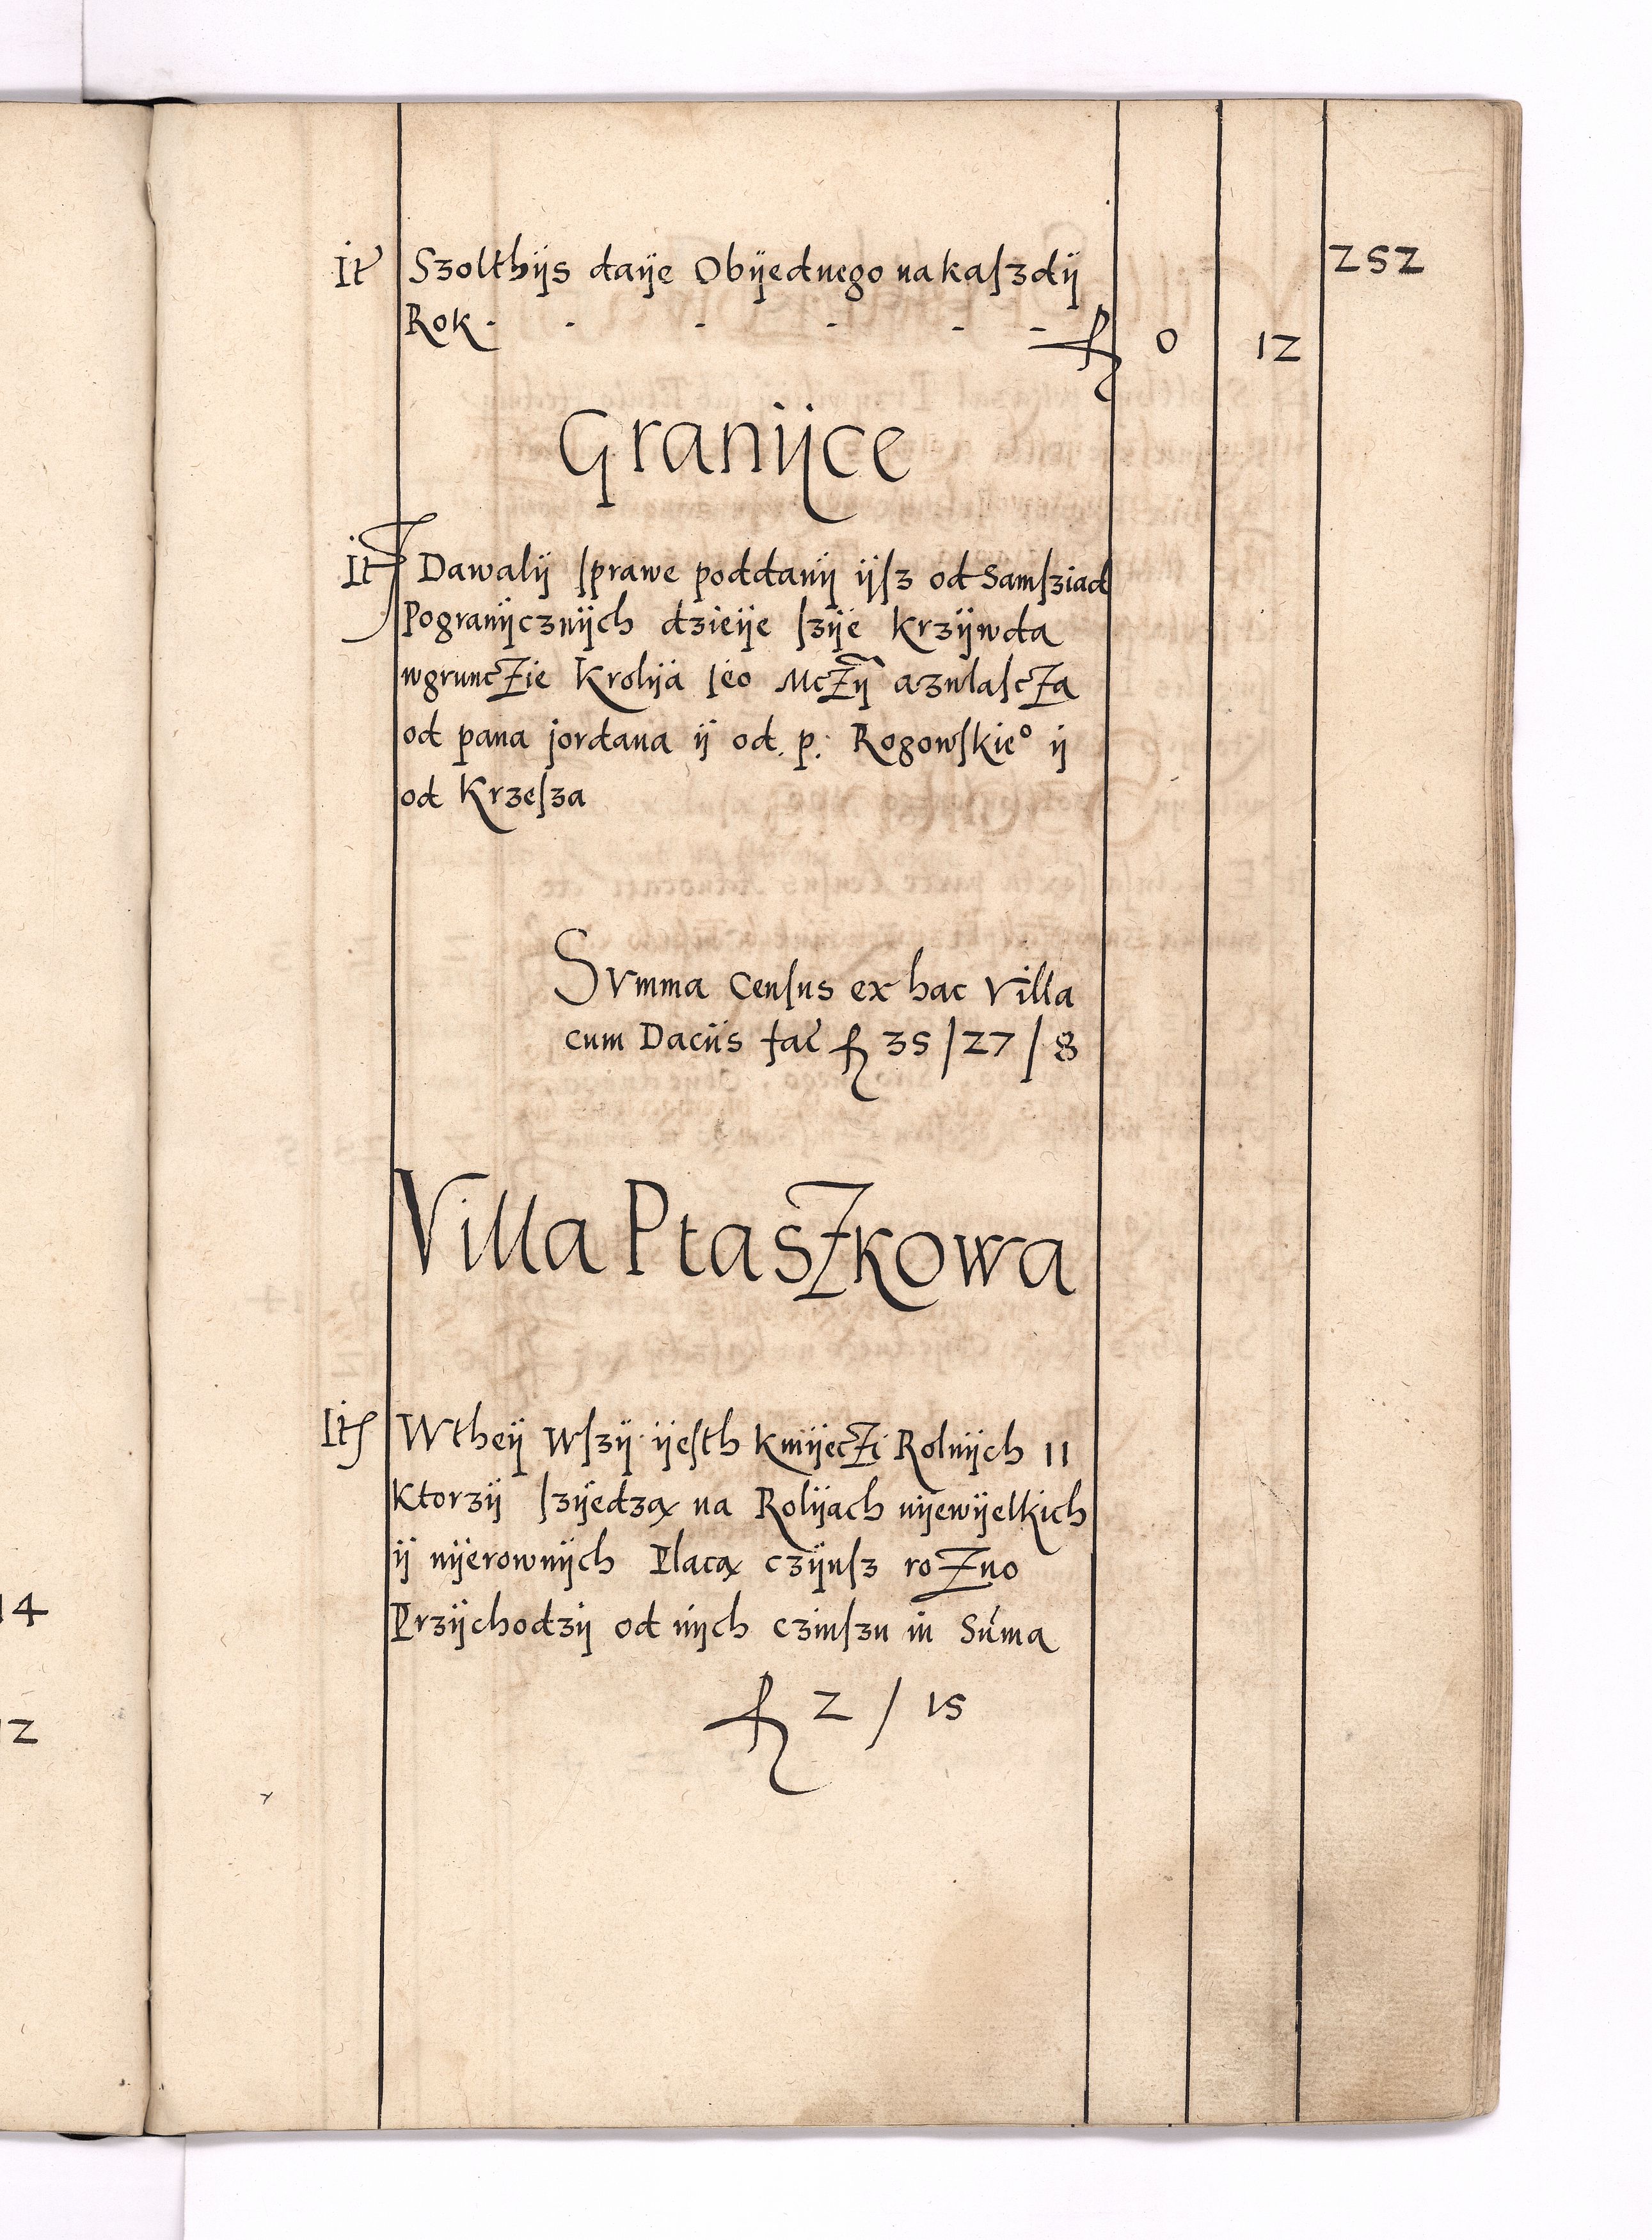 252
It Szolthÿs daÿe Obÿednego na kaſzdÿ
Rok - - - - - - fl 0 12
Granÿce
It Dawalÿ ſprawe poddanÿ ÿſz od Samſziad
Pogranÿcznÿch dzieÿe ſzÿe Krzÿwda
wgrunczie Krolÿa ieo Mczÿ azwlaſcza
od pana jordana ÿ od . p. Rogowſkieº ÿ
od Krzeſza
Svmma Cenſus ex hac Villa
cum Daciis fac fl 35 / 27 / 8
Villa Ptaszkowa
It Wtheÿ Wſzÿ ÿeſth Kmÿeczi Rolnÿch 11
Ktorzÿ ſzÿedzą na Rolÿach nÿewÿelkich
ÿ nÿerownÿch Placą czÿnſz rozno
Przÿchodzÿ od nÿch czinſzu in Suma
fl 2 / 15
14
12